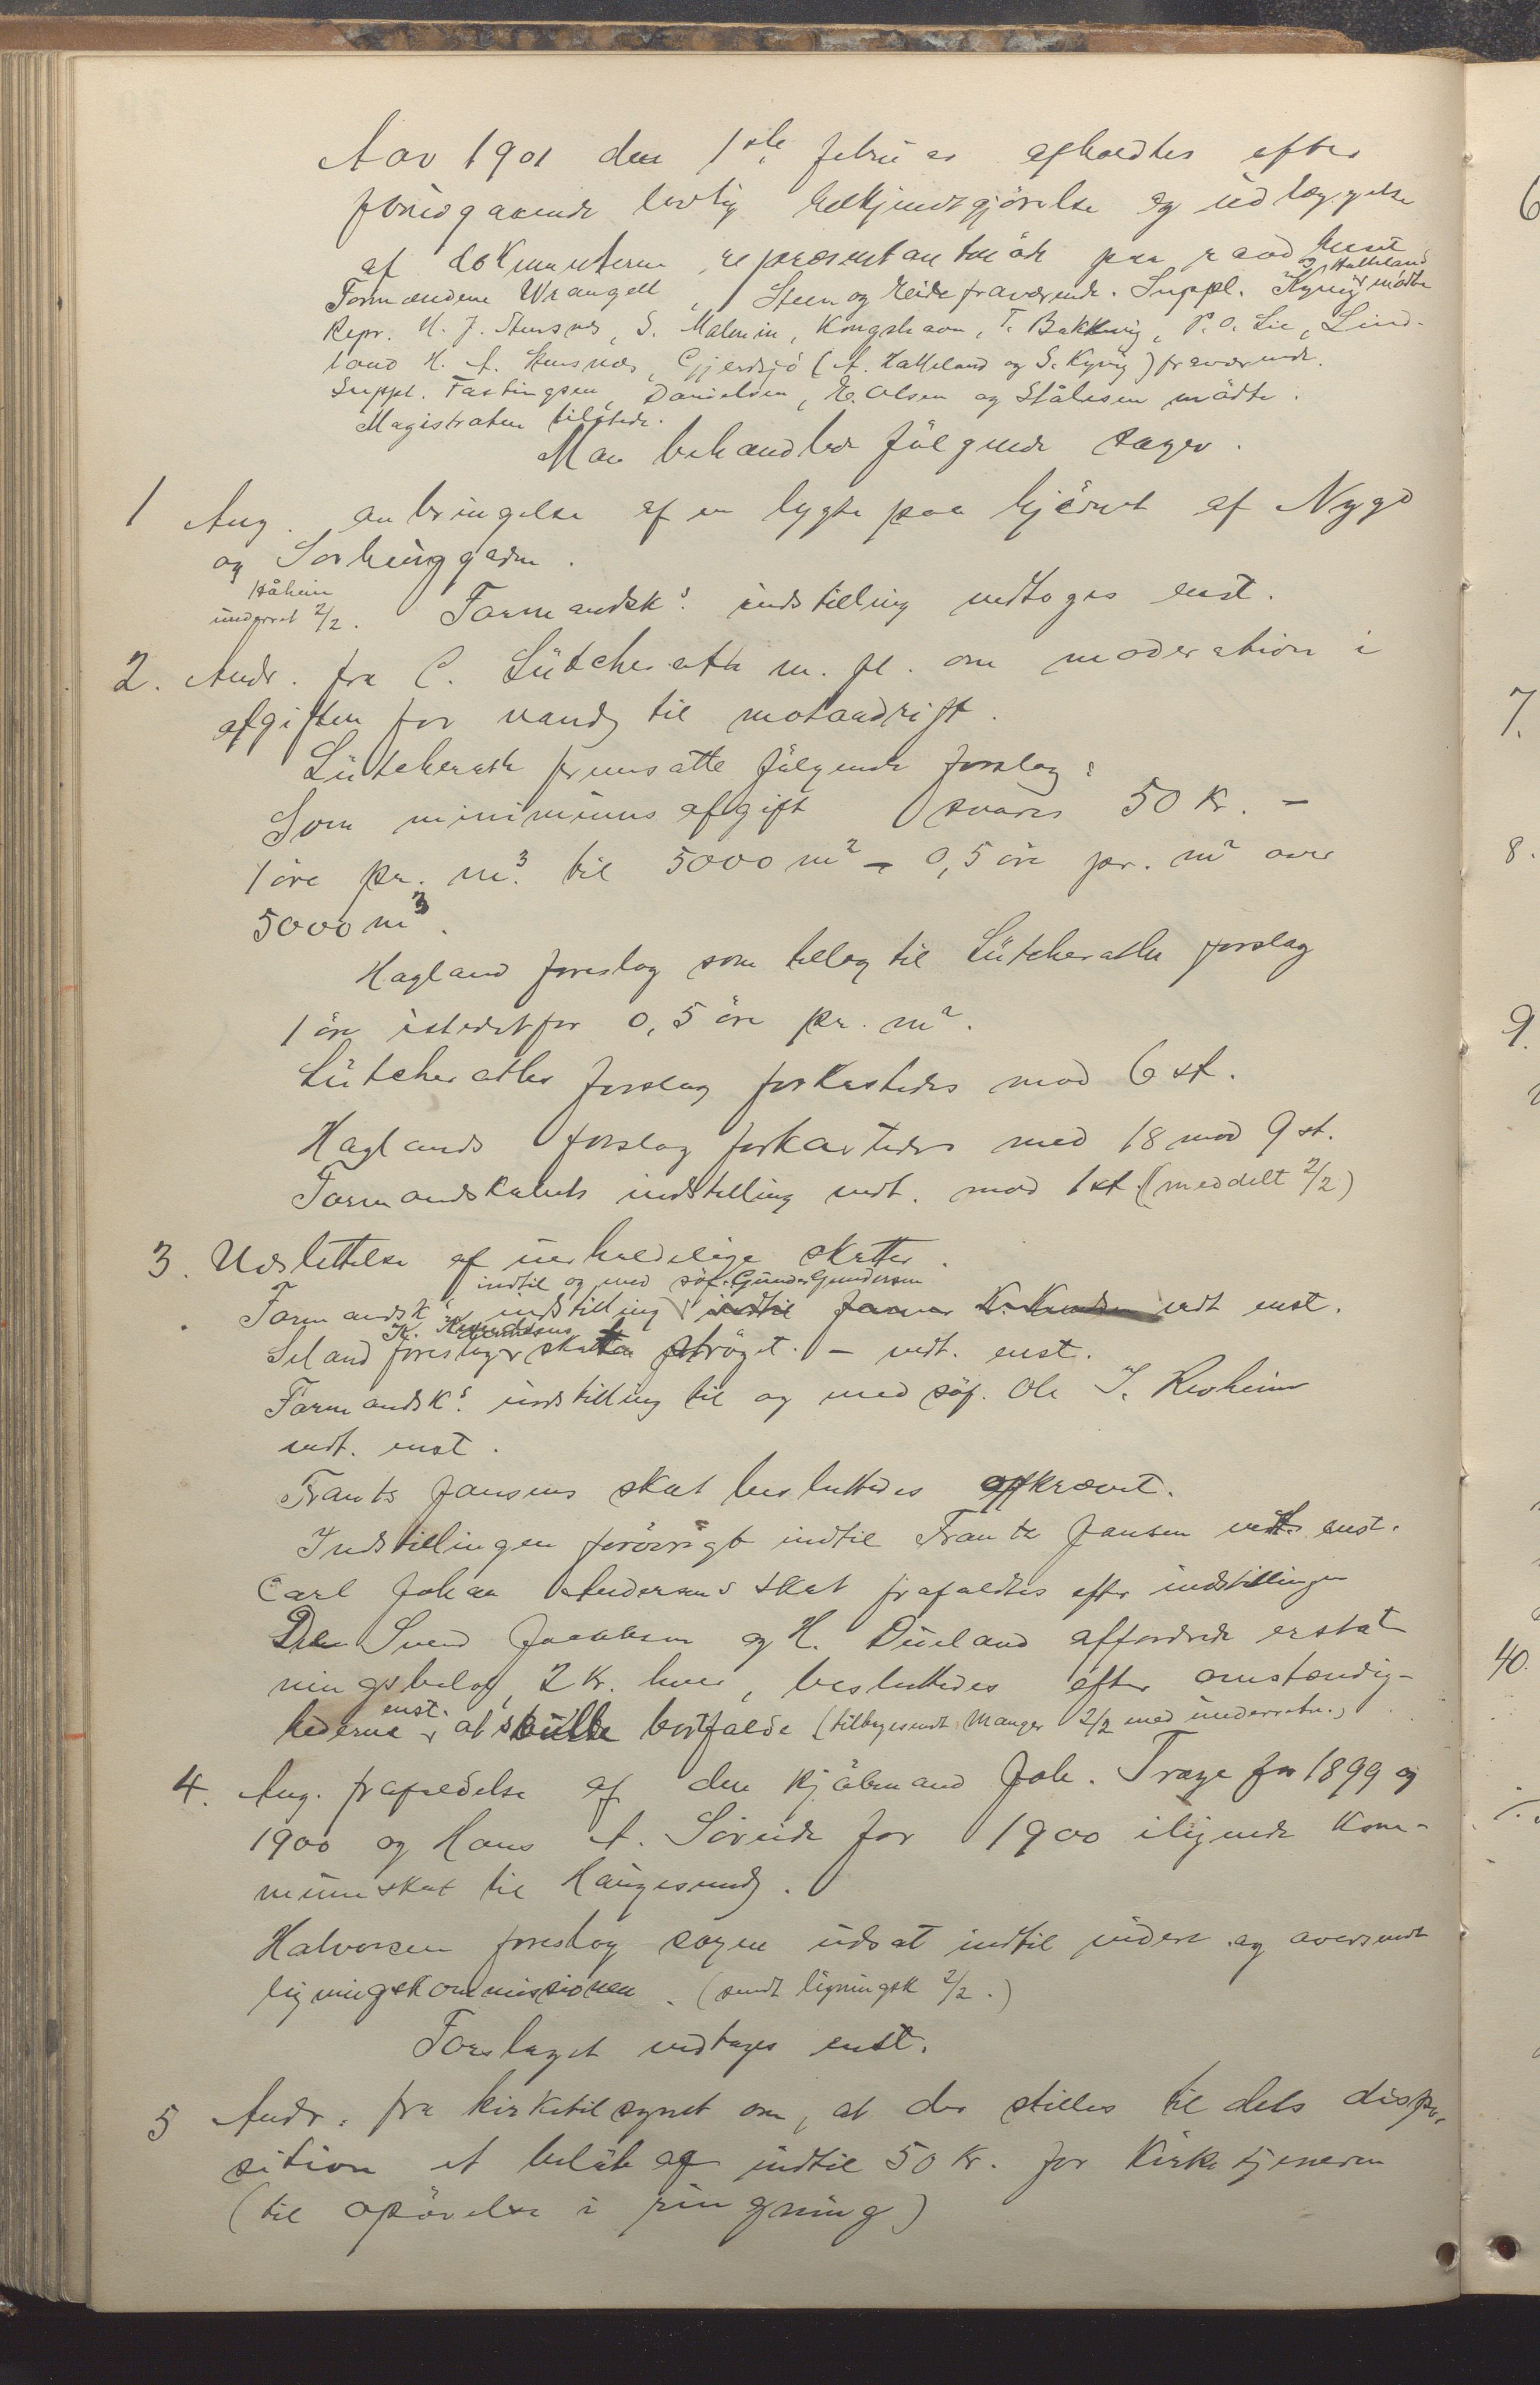 Aar 1901 den 1ste februar afholdtes efter
forudgaaende lovlig bekjendtgjörelse og udlæggelse
af dokumenterne representantmöde paa raadhuset
Formændene Wrangell, Steen og Eide fraværende. Suppl. Kyvig og Hatteland mödte
Repr. M. J. Stensnes, S. Malmin, Kongshavn, T. Bakkevig, P. O. Lie, Lind-
land H. A. Stensnæs, Gjerdsjö (A. Hatteland og S. Kyvig) fraværende.
Suppl. Fastingsen, Danielsen, E. Olsen og Stålesen mödte.
Magistraten tilstede.
Man behandlede fölgende sager.
1 Ang. anbringelse af en lygte paa hjörnet af Nygd
og Sörhauggaden.
Håheim
underret 2/2. Formandsk.s indstilling vedtoges enst.
2. Andr. fra C. Lütcherath m. fl. om moderation i
afgiften for vand til motordrift.
Lütcherath fremsatte fölgende forslag:
Som minimums afgift svares 50 Kr. –
1 öre pr. m3. til 5000 m2 – 0,5 öre pr. m2 over
5000 m3.
Hagland foreslog som tillæg til Lütcheraths forslag
1 öre istedetfor 0,5 öre pr. m2.
Lütcheraths forslag forkastedes mod 6 st.
Haglands forslag forkastedes med 18 mod 9 st.
Formandskabets indstilling vedt. mod 1 st. (meddelt 2/2)
3. Udslettelse af uerholdelige skatter.
indtil og med söf. Gunder Gundersen
Formandsk.s indstilling indtil K. Knudsen vedt enst.
K. Knudsens
Seland foreslog skatten ströget. – vedt. enst.
Formandsk.s indstilling til og med söf. Ole J. Roheim
vedt. enst.
Frantz Jansens skat besluttedes afkrævet.
Indstillingen forövrigt indtil Frantz Jansen vedt. enst.
Carl Johan Andersens skat frafaldtes efter indstillingen
De Svend Jacobsen og H. Dueland affordrede erstat-
ningsbelöb, 2 Kr. hver, besluttedes efter omstændig-
hederne enst. at skulle bortfalde (tilbagesendt Manger 2/2 med underretn.)
4. Ang. frafaldelse af den kjöbmand Joh. Traye for 1899 og
1900 og Hans A. Söreide for 1900 ilignede kom-
muneskat til Haugesund.
Halvorsen foreslog sagen udsat indtil videre og oversendt
ligningskommissionen. (sendt ligningsk 2/2.)
Forslaget vedtages enst.
5 Andr. fra kirketilsynet om, at der stilles til dets dispo-
sition et belöb af indtil 50 Kr. for Kirketjeneren
(til opövelse i ringning)